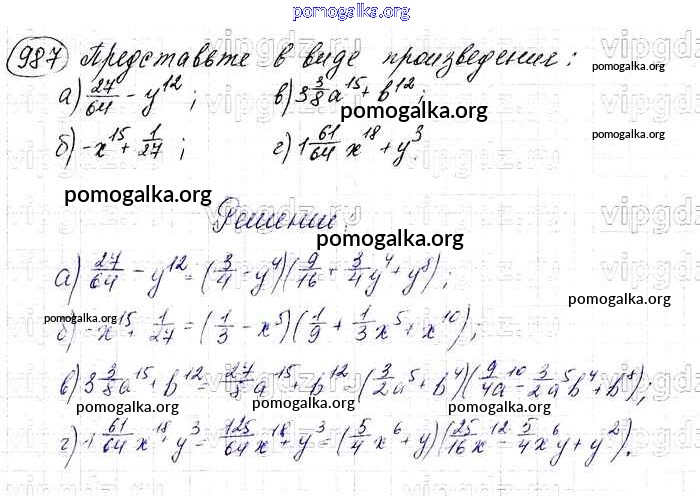 pomogalka.org
987 Представьте в виде произведения:
pomogalka.org
а) 27/64 - y^12; в) 3 3/8 a^15 + b^12;
pomogalka.org
б) -x^15 + 1/27; г) 1 61/64 x^18 + y^3.
pomogalka.org
pomogalka.org
vipgdz.ru
Решение:
pomogalka.org
а) 27/64 - y^12 = (3/4 - y^4)(9/16 + 3/4 y^4 + y^8);
pomogalka.org
б) -x^15 + 1/27 = (1/3 - x^5)(1/9 + 1/3 x^5 + x^10);
в) 3 3/8 a^15 + b^12 = 27/8 a^15 + b^12 = (3/2 a^5 + b^4)(9/4 a^10 - 3/2 a^5 b^4 + b^8);
pomogalka.org pomogalka.org pomogalka.org
г) 1 61/64 x^18 + y^3 = 125/64 x^18 + y^3 = (5/4 x^6 + y)(25/16 x^12 - 5/4 x^6 y + y^2).